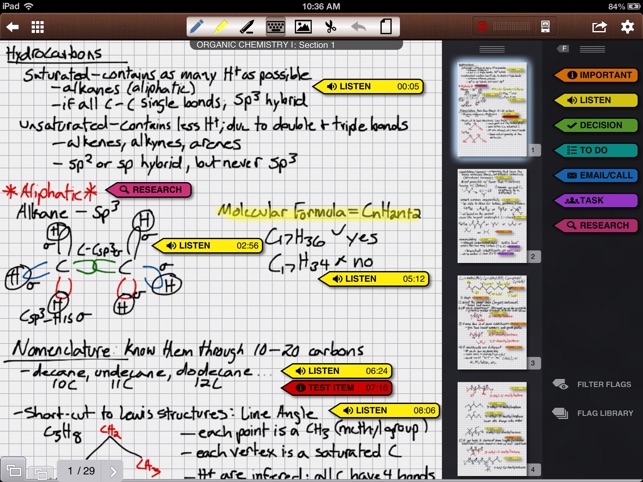 iPad
10:36 AM
84%
ORGANIC CHEMISTRY I: Section 1
Hydrocarbons
Saturated-contains as many H+ as possible
-alkanes (aliphatic)
LISTEN 00:05
-if all C-C single bonds, Sp3 hybrid
unsaturated-contains less H+, due to double & triple bonds
-alkenes, alkynes, arenes
- sp2 or sp hybrid, but never sp3
*Aliphatic*
RESEARCH
Alkane - Sp3
Molecular Formula = CnH2n+2
C17H36 yes
LISTEN 02:56
C17H34 x no
LISTEN 05:12
H H
σ σ
C-Csp3σ
H σ C C σ H
σ σ
H H
Csp3-H1sσ
Nomenclature: Know them through 10-20 carbons
-decane, undecane, dodecane...
LISTEN 06:24
10C 11C 12C
TEST ITEM 07:16
-Short-cut to Lewis structures: Line Angle
LISTEN 08:06
C3H8
CH2
CH3
-each point is a CH3 (methyl group)
-each vertex is a saturated C
- H+ are infered: all C have 4 bonds
1 / 29
1
2
3
4
F
IMPORTANT
LISTEN
DECISION
TO DO
EMAIL/CALL
TASK
RESEARCH
FILTER FLAGS
FLAG LIBRARY